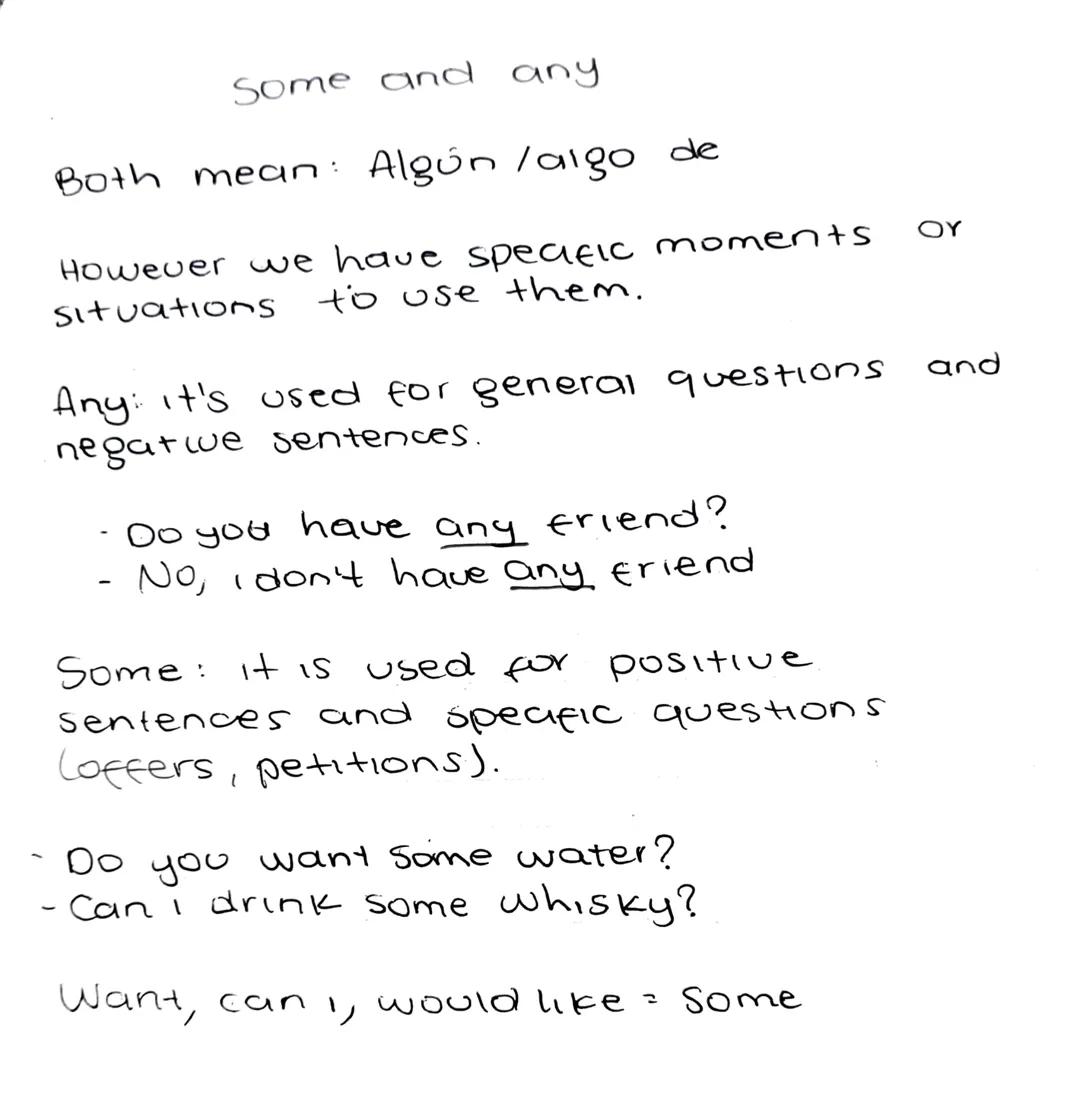 Some and any
Both mean: Algún / algo de
However we have specific moments or
situations to use them.
Any: it's used for general questions and
negative sentences.
- Do you have any friend?
- No, i don't have any friend
Some: it is used for positive
sentences and specific questions
(offers, petitions).
- Do you want some water?
- Can i drink some whisky?
Want, can i, would like = some